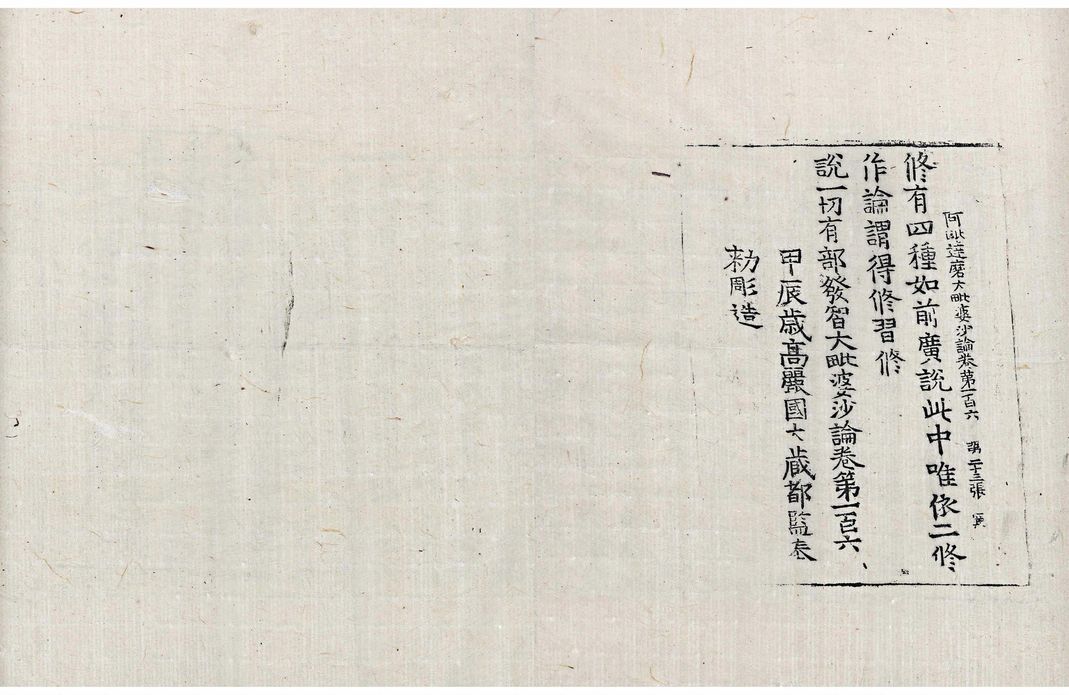 阿毗達磨大毗婆沙論卷第一百六 第二十三張
修有四種如前廣說此中唯依二修
作論謂得修習修
說一切有部發智大毗婆沙論卷第一百六
甲辰歲高麗國大藏都監奉
勑彫造